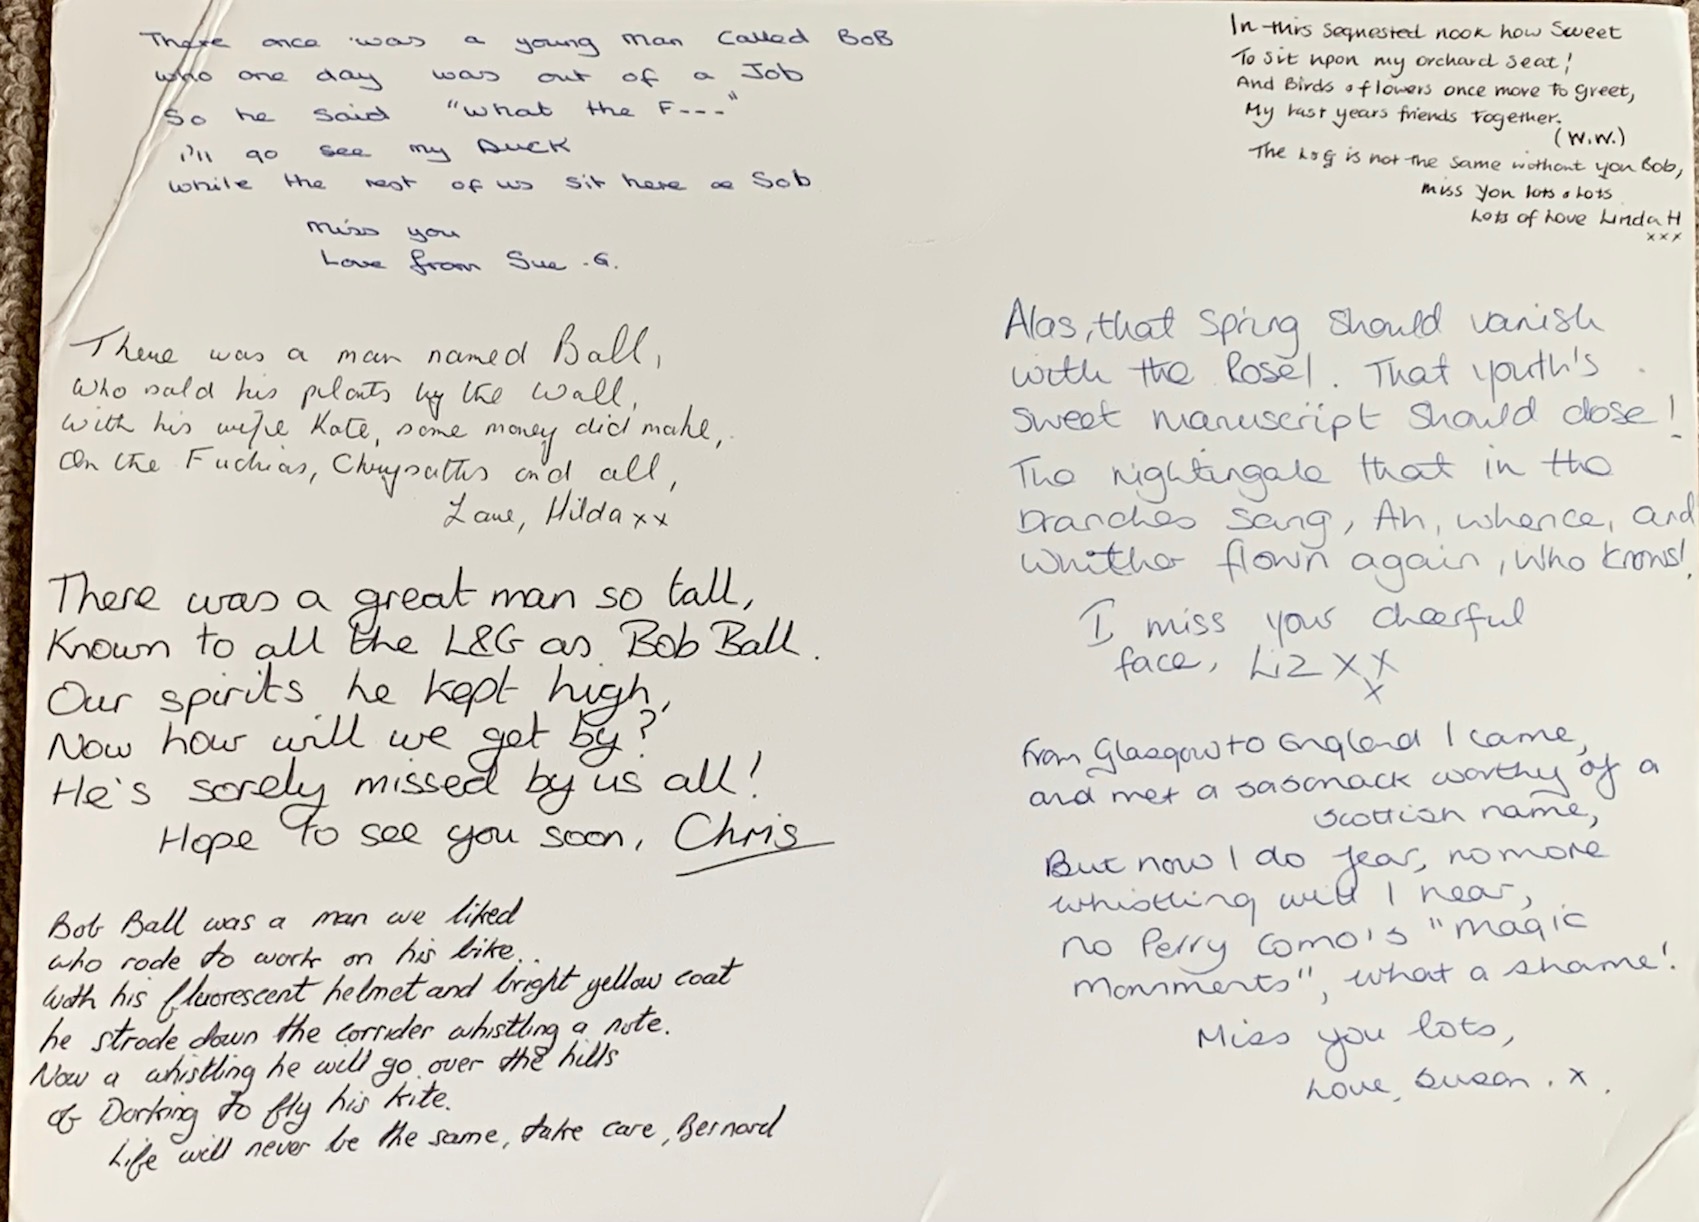 There once was a young man called BoB
who one day was out of a Job
So he said "what the F---"
i'll go see my Duck
while the rest of us sit here & Sob
Miss you
Love from Sue .G.
There was a man named Ball,
Who sold his plants by the wall,
with his wife Kate, some money did make,
On the Fuchias, Chrysatths and all,
Love, Hilda xx
There was a great man so tall,
Known to all the L&G as Bob Ball.
Our spirits he kept high,
Now how will we get by?
He's sorely missed by us all!
Hope to see you soon, Chris
Bob Ball was a man we liked
who rode to work on his bike..
with his fluorescent helmet and bright yellow coat
he strode down the corrider whistling a note.
Now a whistling he will go over the hills
of Dorking to fly his kite.
Life will never be the same, take care, Bernard
In this sequested nook how sweet
To sit upon my orchard seat!
And Birds & flowers once more to greet,
My last years friends together.
(W.W.)
The L&G is not the same without you Bob,
miss you lots & lots
Lots of Love Linda H
xxx
Alas, that spring should vanish
with the Rose!. That youth's
sweet manuscript should close!
The nightingale that in the
branches sang, Ah, whence, and
whither flown again, who knows!
I miss your cheerful
face, Liz xx
x
From Glasgow to England I came,
and met a sasanack worthy of a
scottish name,
But now I do fear, no more
whistling will I hear,
no Perry Como's "magic
monments", what a shame!
Miss you lots,
Love, Susan . x .